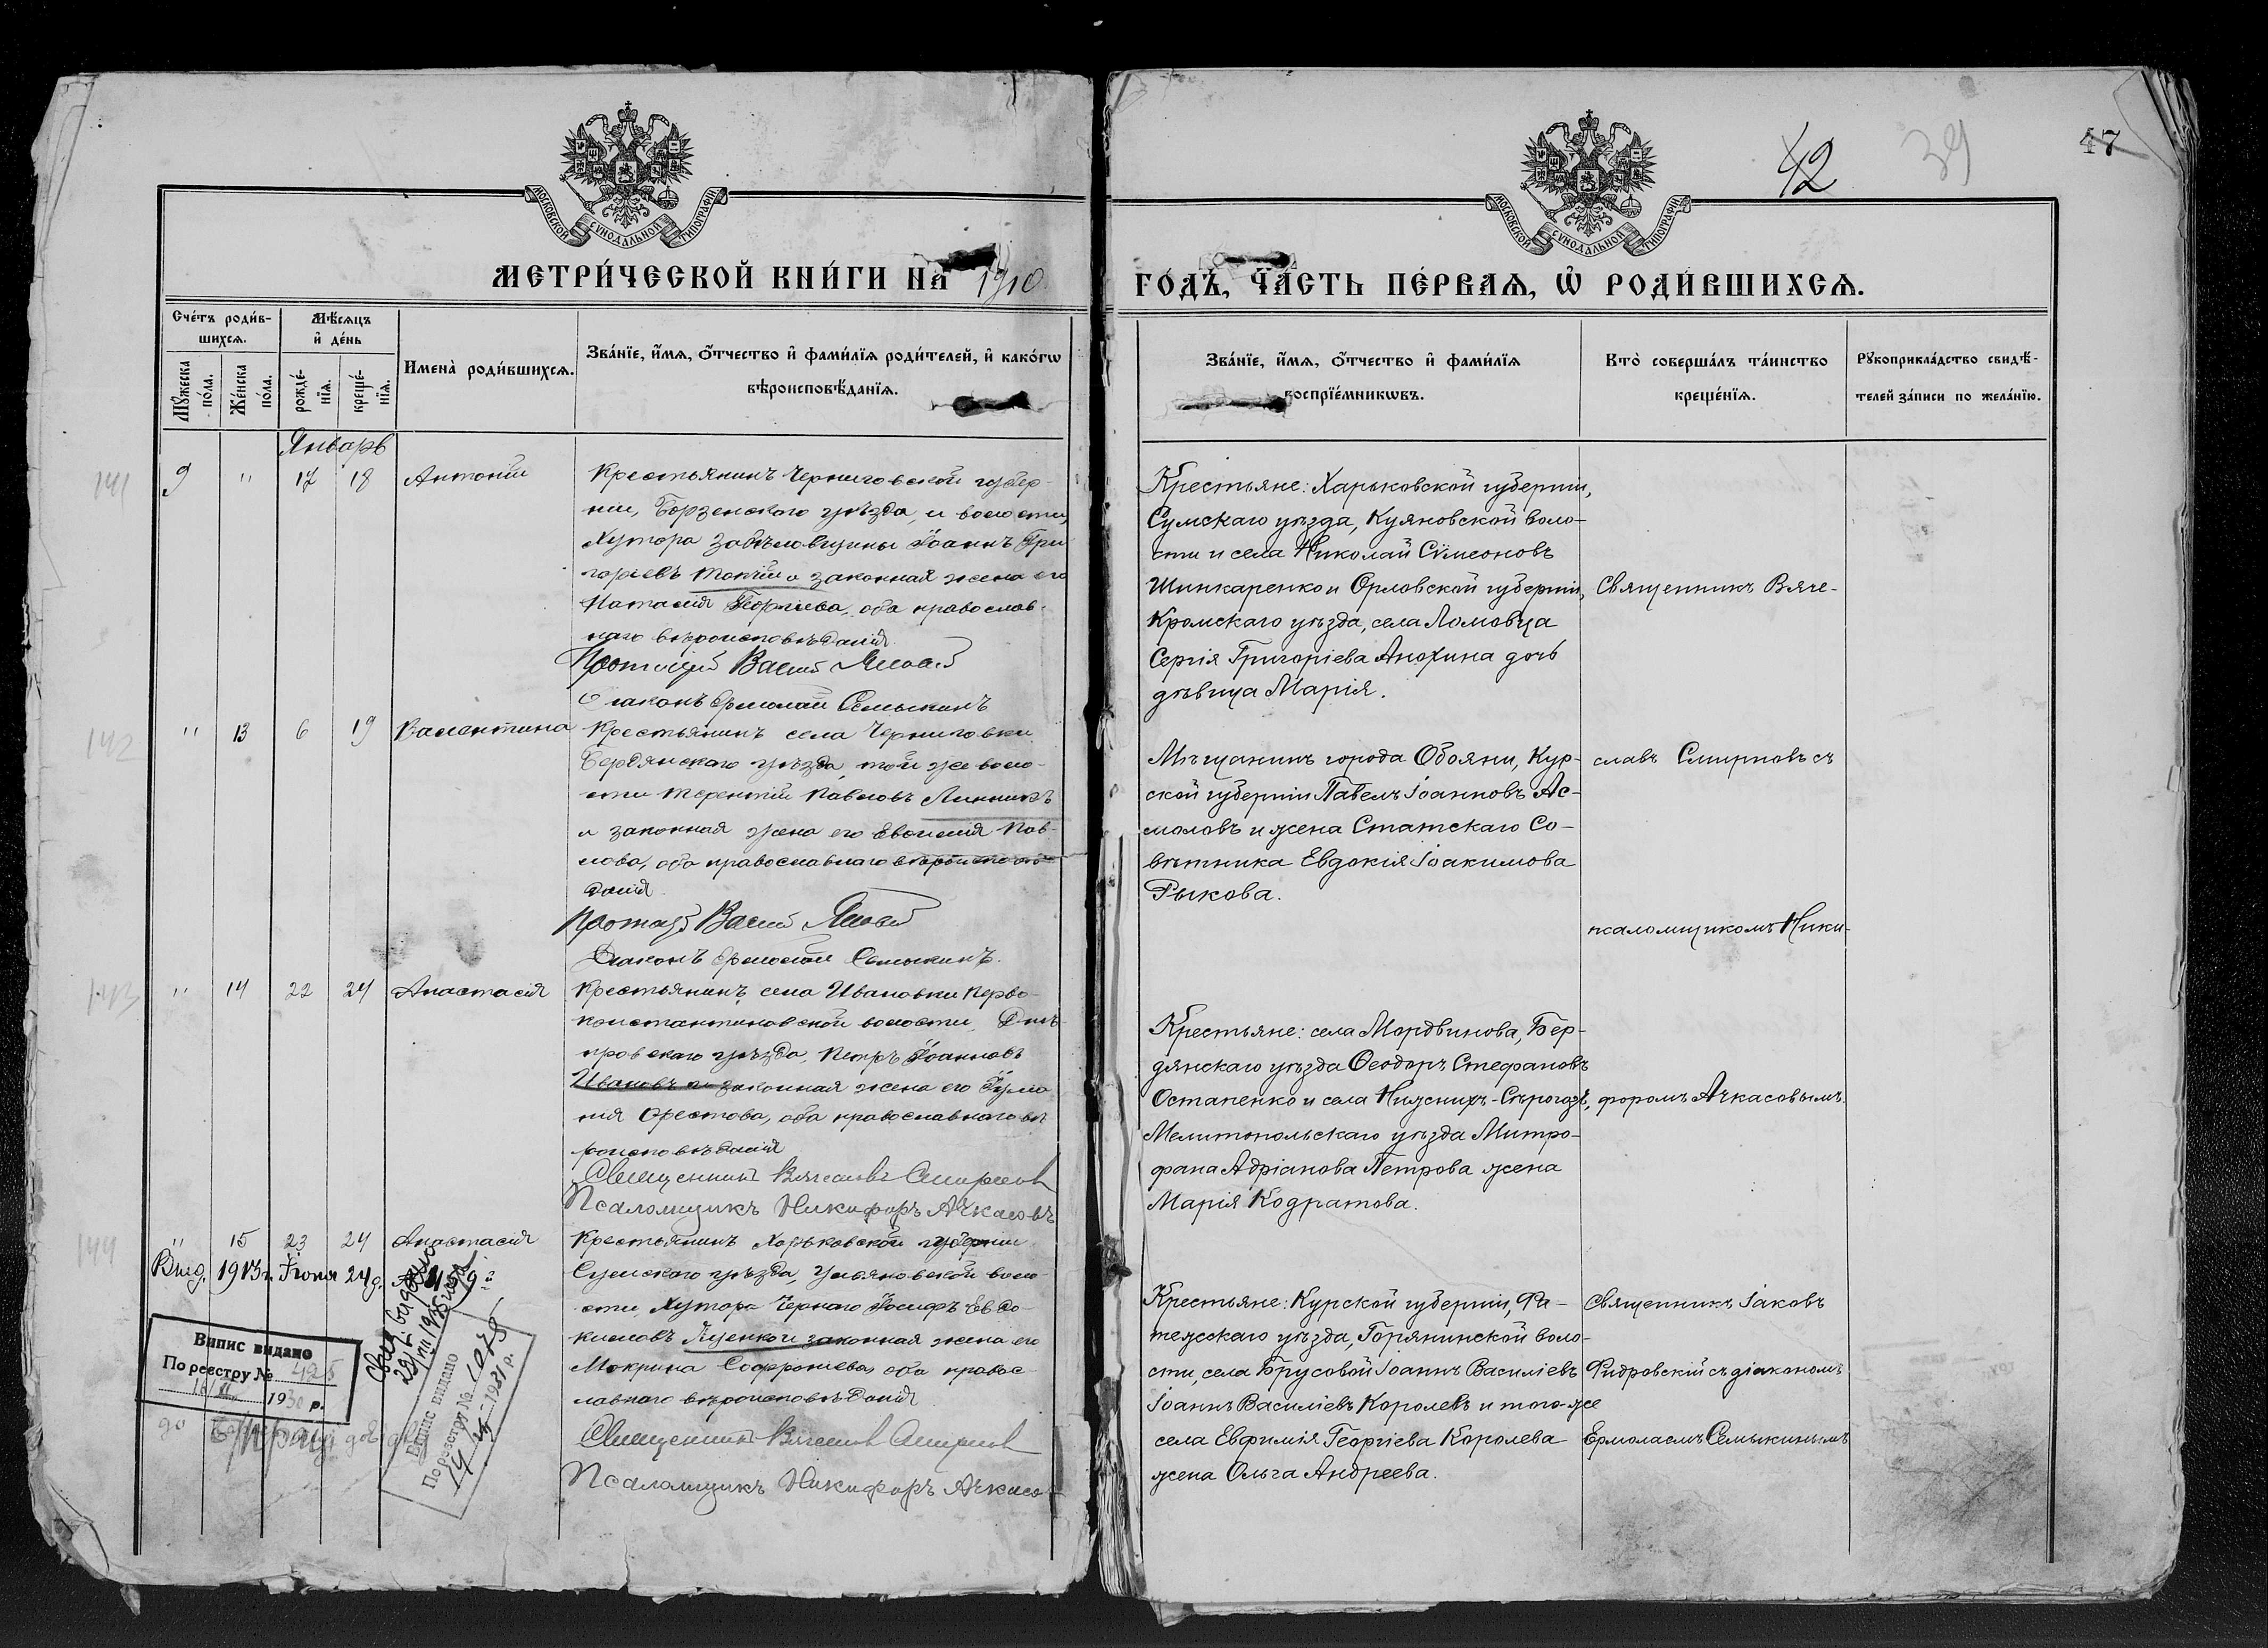 42
39
47
МОСКОВСКОЙ СѴНОДАЛЬНОЙ ТИПОГРАФІИ
МОСКОВСКОЙ СѴНОДАЛЬНОЙ ТИПОГРАФІИ
МЕТРИ́ЧЕСКОЙ КНИ́ГИ НА 1910
ГО́ДЪ, ЧА́СТЬ ПЕ́РВАЯ, Ѡ҆ РОДИ́ВШИХСЯ.
Сче́тъ роди́в-
шихся.
Мѣ́сяцъ
и҆ де́нь
Мꙋ́жеска по́ла.
Же́нска по́ла.
рожде́-
нїя.
креще́-
нїя.
Имена̀ роди́вшихся.
Зва́нїе, и҆́мя, ѻ҆́тчество и҆ фами́лїя роди́телей, и҆ како́гѡ
вѣроисповѣ́данїя.
Зва́нїе, и҆́мя, ѻ҆́тчество и҆ фами́лїя
воспрїе́мникѡвъ.
Кто̀ соверша́лъ та́инство
креще́нїя.
Рꙋкоприкла́дство свидѣ́-
телей за́писи по жела́нїю.
Январь
141
9 " 17 18 Антоній
Крестьянинъ Черниговской губер-
ніи, Борзенскаго уѣзда, и волости,
Хутора Забѣловщины Іоаннъ Гри
горьевъ Топчій и законная жена его
Наталія Георгіева, оба православ-
наго вѣроисповѣданія.
Діаконъ Ермолай Семыкинъ
Крестьяне: Харьковской губерніи,
Сумскаго уѣзда, Куяновской воло-
сти и села Николай Сѵмеоновъ
Шинкаренко и Орловской губерніи,
Кромскаго уѣзда, села Ломовца
Сергія Григоріева Анохина дочь
дѣвица Марія.
Священникъ Вяче-
142
" 13 6 19 Валентина
Крестьянинъ села Черниговки
Бердянскаго уѣзда, той же воло-
сти Терентій Павловъ Линникъ
и законная жена его Евфимія Пав-
лова, оба православнаго вѣроисповѣ-
данія
Діаконъ Ермолай Семыкинъ.
Мѣщанинъ города Обояни, Кур-
ской губерніи Павелъ Іоанновъ Ас-
моловъ и жена Статскаго Со-
вѣтника Евдокія Іоакимова
Рыкова.
славъ Смирновъ съ
псаломщикомъ Ники-
143
" 14 22 24 Анастасія
Крестьянинъ села Ивановки Перво-
константиновской волости Днѣ-
провскаго уѣзда Петръ Іоанновъ
Ивановъ и законная жена его Іулiа
нія Орестова, оба православнаго вѣ
роисповѣданія
Священникъ Вячеславъ Смирновъ
Псаломщикъ Никифоръ Ачкасовъ
Крестьяне: села Мордвинова, Бер-
дянскаго уѣзда Ѳеодоръ Стефановъ
Остапенко и села Нижнихъ-Сѣрогозъ,
Мелитопольскаго уѣзда Митро-
фана Адріанова Петрова жена
Марія Кодратова.
форомъ Ачкасовымъ.
144
" 15 23 24 Анастасія
Крестьянинъ Харьковской губерніи
Сумскаго уѣзда, Ульяновской воло-
сти, Хутора Чернаго Іосифъ Евдо-
кимовъ Яценко и законная жена его
Мокрина Софроніева, оба правос-
лавнаго вѣроисповѣданія
Священникъ Вячеславъ Смирновъ
Псаломщикъ Никифоръ Ачкасов
Крестьяне: Курской губерніи, Фа-
тежскаго уѣзда, Горянинской воло-
сти, села Брусовой Іоаннъ Василіевъ
Іоаннъ Василіевъ Королевъ и того же
села Евфимія Георгіева Королева
жена Ольга Андреева.
Священникъ Іаковъ
Фидровскій съ діакономъ
Ермолаемъ Семыкинымъ
Выд. 1913 г. Іюня 24 д.
Випис видано
По реєстру № 425
1930 р.
Випис видано
По реєстру № 1079
1931 р.